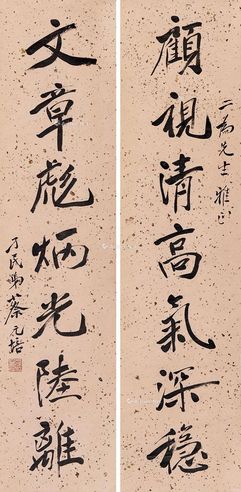 顧視清高氣深穩
二為先生雅正
文章彪炳光陸離
孑民弟蔡元培